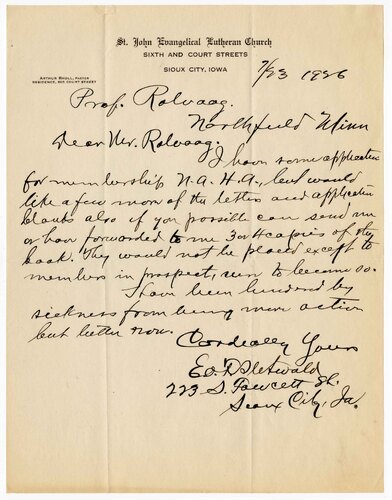 St. John Evangelical Lutheran Church
SIXTH AND COURT STREETS
SIOUX CITY, IOWA
ARTHUR SHOLL, PASTOR
RESIDENCE, COURT STREET
7/23 1926
Prof. Rolvaag.
Northfield Minn
Dear Mr. Rolvaag:
I have some application
for membership N.A.H.A., but would
like a few more of the letter and application
blanks also if you possible can send me
or have forwarded to me 3 or 4 copies of the
book. They would not be placed except to
members in prospect, sure to become so.
I have been hindered by
sickness from being more active
but better now.
Cordeally Yours
Ed.
223 S. Fawcett St.
Sioux City, Ia.